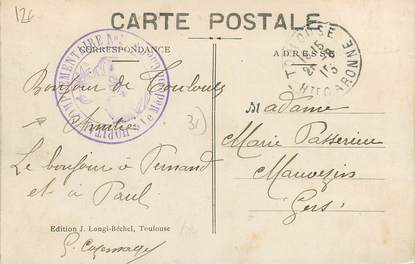 121
CARTE POSTALE
CORRESPONDANCE
ADRESSE
HOPITAL
Le Méd
TOULOUSE
HTE GARONNE
Bonjour de Toulouse
Amitié
Le bonjour à Fernand
et à Paul
31
Madame
Marie Passerieu
Mauvezin
Gers
Edition J. Longi-Béchel, Toulouse